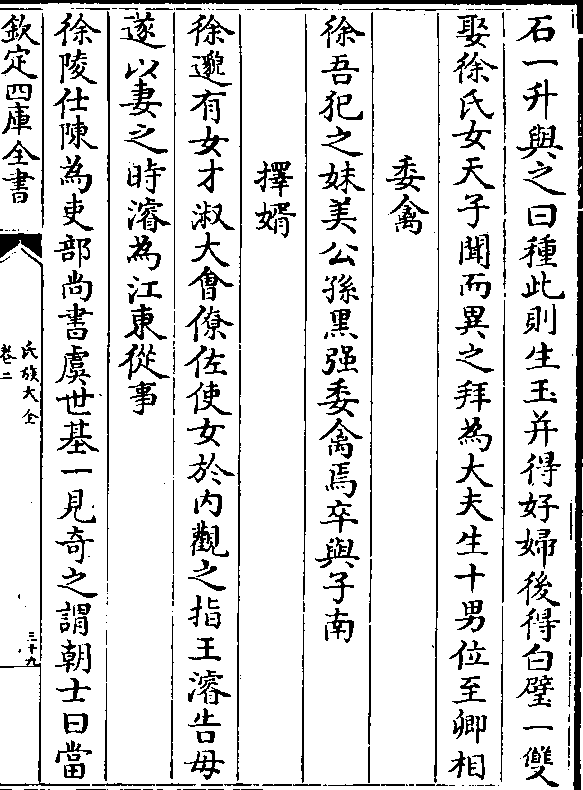 石一升與之曰種此則生玉并得好婦後得白璧一雙
娶徐氏女天子聞而異之拜為大夫生十男位至卿相
委禽
徐吾犯之妹美公孫黑强委禽焉卒與子南
擇婿
徐邈有女才淑大會僚佐使女於内觀之指王濬告母
遂以妻之時濬為江東從事
徐陵仕陳為吏部尚書虞世基一見奇之謂朝士曰當
欽定四庫全書
氏族大全
卷二
三十九